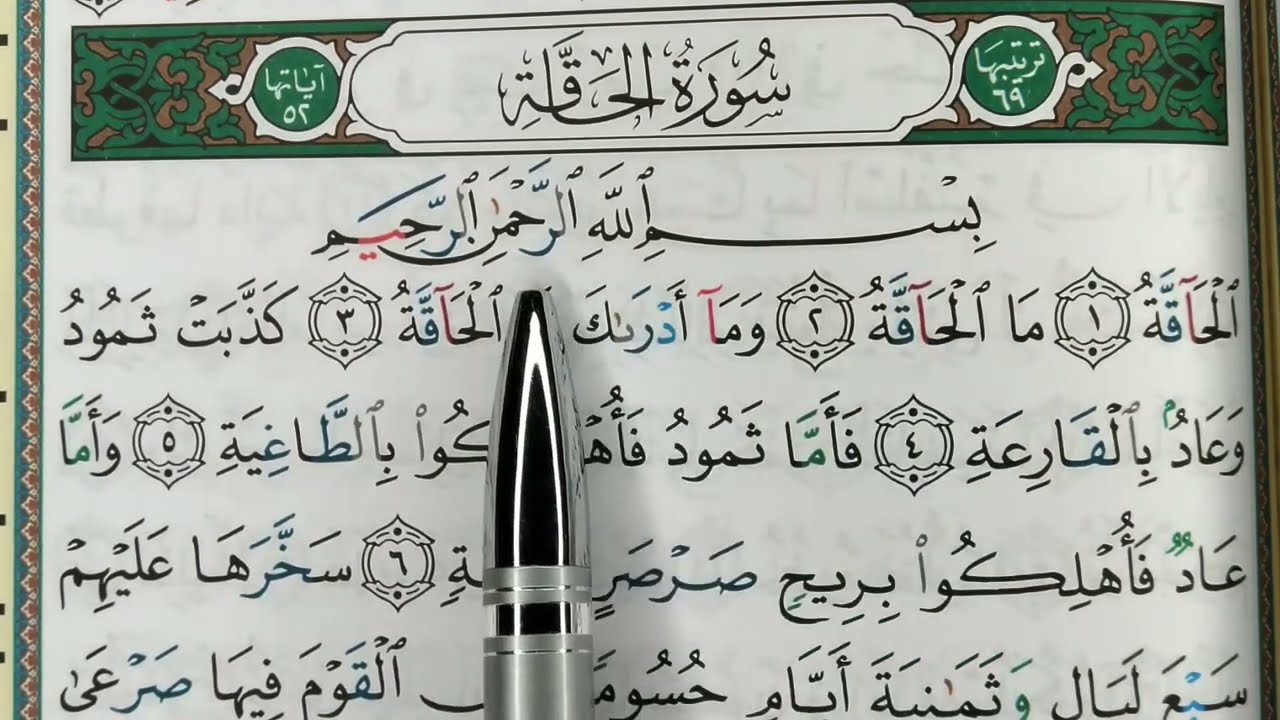 ترتيبها ٦٩
سُورَةُ الحَاقَّةِ
آياتها ٥٢
بِسْمِ ٱللَّهِ ٱلرَّحْمَٰنِ ٱلرَّحِيمِ
ٱلْحَآقَّةُ ١ مَا ٱلْحَآقَّةُ ٢ وَمَآ أَدْرَىٰكَ ٱلْحَآقَّةُ ٣ كَذَّبَتْ ثَمُودُ
وَعَادُۢ بِٱلْقَارِعَةِ ٤ فَأَمَّا ثَمُودُ فَأُهْلِكُوا۟ بِٱلطَّاغِيَةِ ٥ وَأَمَّا
عَادٌ فَأُهْلِكُوا۟ بِرِيحٍ صَرْصَرٍ ٦ سَخَّرَهَا عَلَيْهِمْ
سَبْعَ لَيَالٍ وَثَمَٰنِيَةَ أَيَّامٍ حُسُومًا ٱلْقَوْمَ فِيهَا صَرْعَىٰ